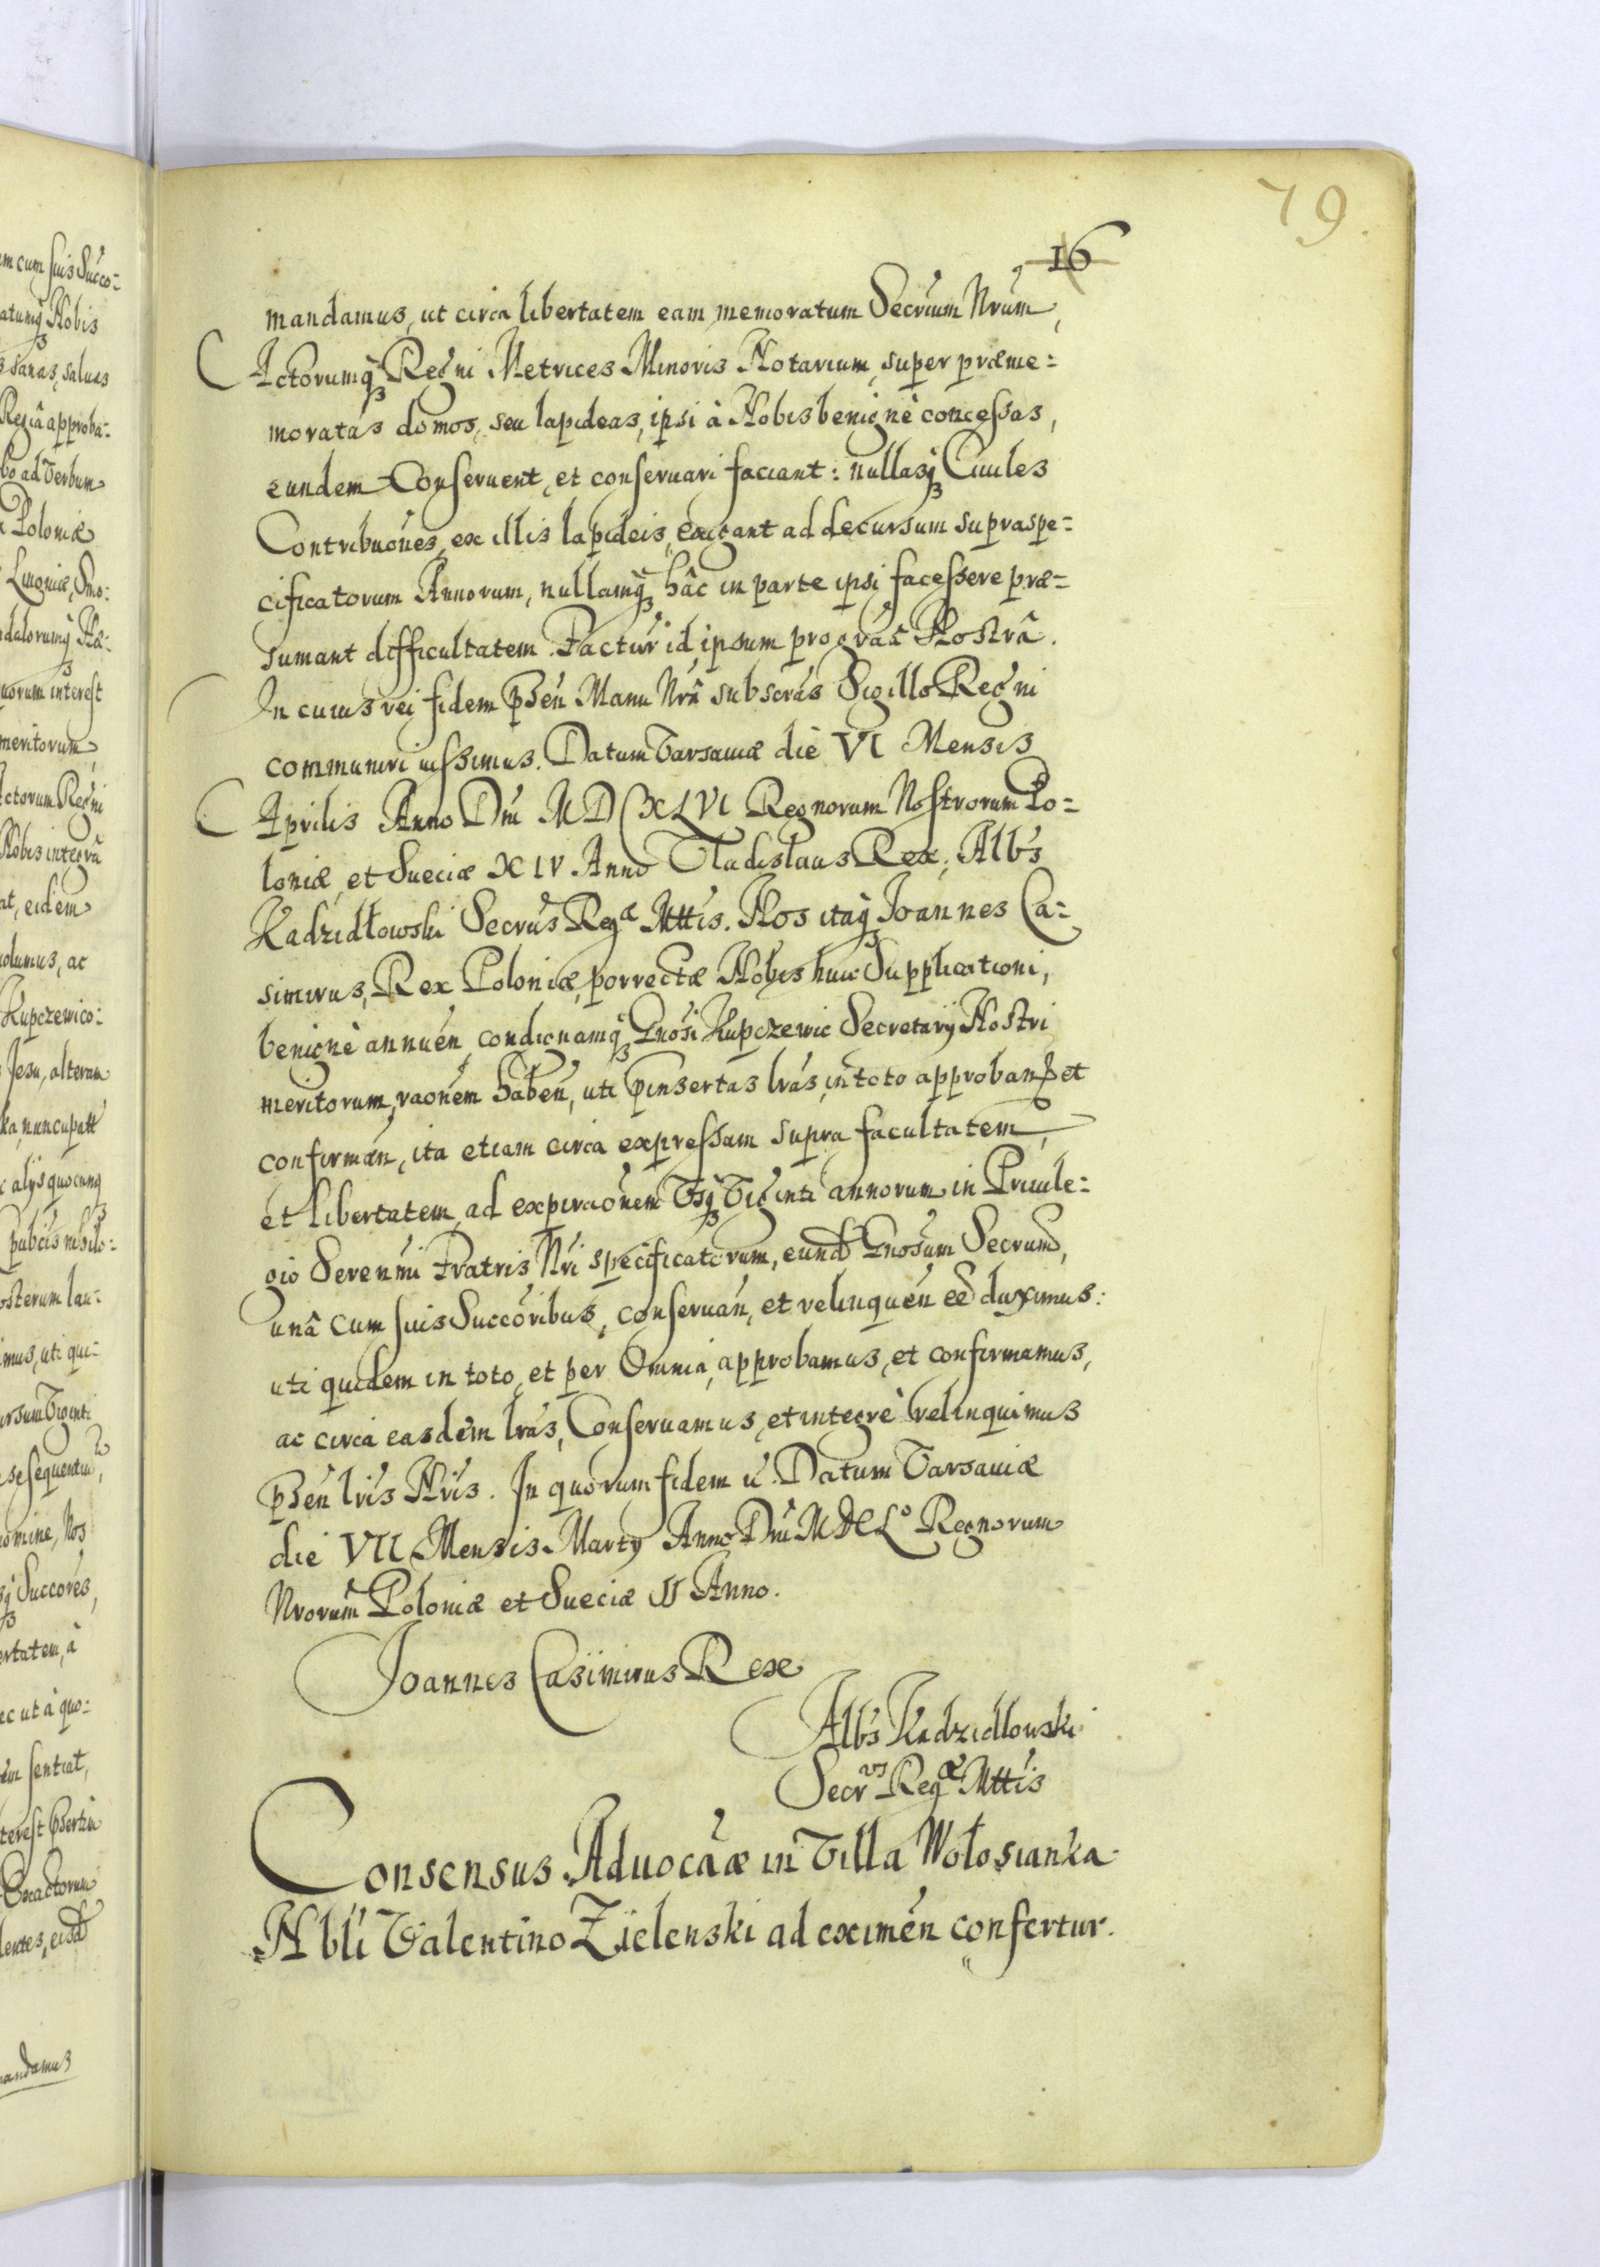 79
16
mandamus, ut circa libertatem eam memoratum Secrium Nrum,
Actorumq́ꝫ Regni Metrices Minoris Notarium, super præme=
moratas domos, seu lapideas, ipsi à Nobis benignè concessas,
eundem Conseruent, et conseruari faciant: nullasq́ꝫ Ciuiles
Contribuões, ex illis lapideis, exigant ad decursum supraspe=
cificatorum Annorum, nullamq́ꝫ hâc in parte ipsi facessere præ=
sumant difficultatem. Facturi id ipsum pro grãa Nostrâ.
In cuius rei fidem pñsen Manu Nrâ subscrãs Sigillo Regni
communiri iussimus. Datum Varsauiæ diè VI Mensis
Aprilis Anno Dñi MDCXLVI Regnorum Nostrorum Po=
loniæ, et Sueciæ XIV Anno Vladislaus Rex, Albs
Kadzidłowski Secrus Regæ Mttis. Nos itaq́ꝫ Joannes Ca=
simirus, Rex Poloniæ, porrectæ Nobis huic Supplicationi,
benignè annuen, condignamq́ꝫ Gnosi Kupczewic Secretarij Nostri
meritorum, raõnem haben, uti pinsertas lras, in toto approband et
confirman, ita etiam circa expressam supra facultatem,
et libertatem, ad expiraõnem Vsq́ꝫ Viginti annorum in Priuile=
gio Serenmi Fratris Nri specificatorum, eund Gnosum Secrum,
unâ cum suis Succoribus, conseruan, et relinquen eẽ duximus:
uti quidem in toto, et per Omnia, approbamus, et confirmamus,
ac circa easdem lras, Conseruamus, et integrè relinquimus
pñsen lris Nris. In quorum fidem ũ. Datum Varsauiæ
die VII Mensis Martij Anno Dñi MDCLo Regnorum
Nrorum Poloniæ et Sueciæ II Anno.
Joannes Casimirus Rex
Albs Kadzidlowski
Secrus Regæ Mttis
Consensus Aduocãæ in Villa Wołosianka
Nbli Valentino Zielenski ad eximen confertur.